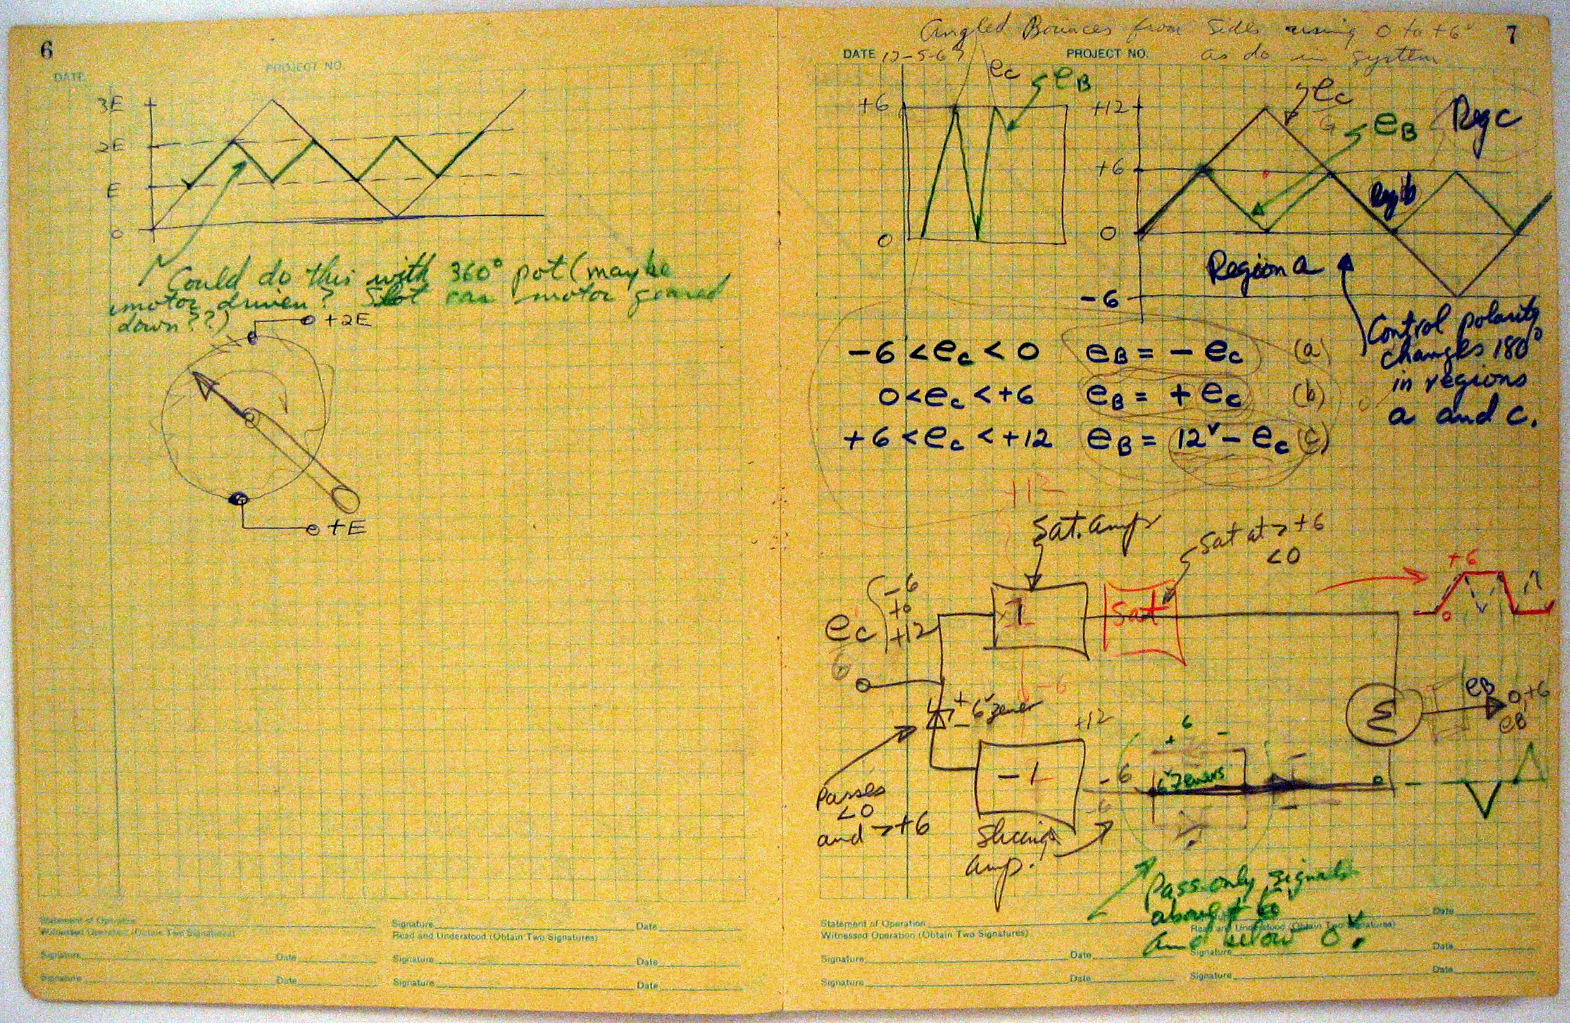 6
DATE
PROJECT NO.
3E
2E
E
0
Could do this with 360° pot (maybe
motor driven? Slot car motor geared
down??)
+2E
+E
Statement of Operation
Witnessed Operation (Obtain Two Signatures)
Signature Date
Signature Date
Signature Date
Read and Understood (Obtain Two Signatures)
Signature Date
Signature Date
Angled Bounces from Sides using 0 to +6v
7
DATE 12-5-67
PROJECT NO.
as do in system
ec
eB
+6
0
+12
+6
0
-6
ec
eB
Reg c
Reg b
Region a
Control polarity
changes 180°
in regions
a and c.
-6 < ec < 0 eB = - ec (a)
0 < ec < +6 eB = + ec (b)
+6 < ec < +12 eB = 12v - ec (c)
+12
Sat. Amp
Sat at > +6
<0
+6
0
ec
-6
+0
+12
1
Sat
-6
+ 6v zener
-
+12
Σ
eB
0,+6
eB
Passes
<0
and > +6
-1
-6
-6
+ 6 -
6v zeners
Slicing
Amp.
Pass only signals
above + 6
and below 0v.
Statement of Operation
Witnessed Operation (Obtain Two Signatures)
Signature Date
Signature Date
Date
Read and Understood (Obtain Two Signatures)
Signature Date
Signature Date